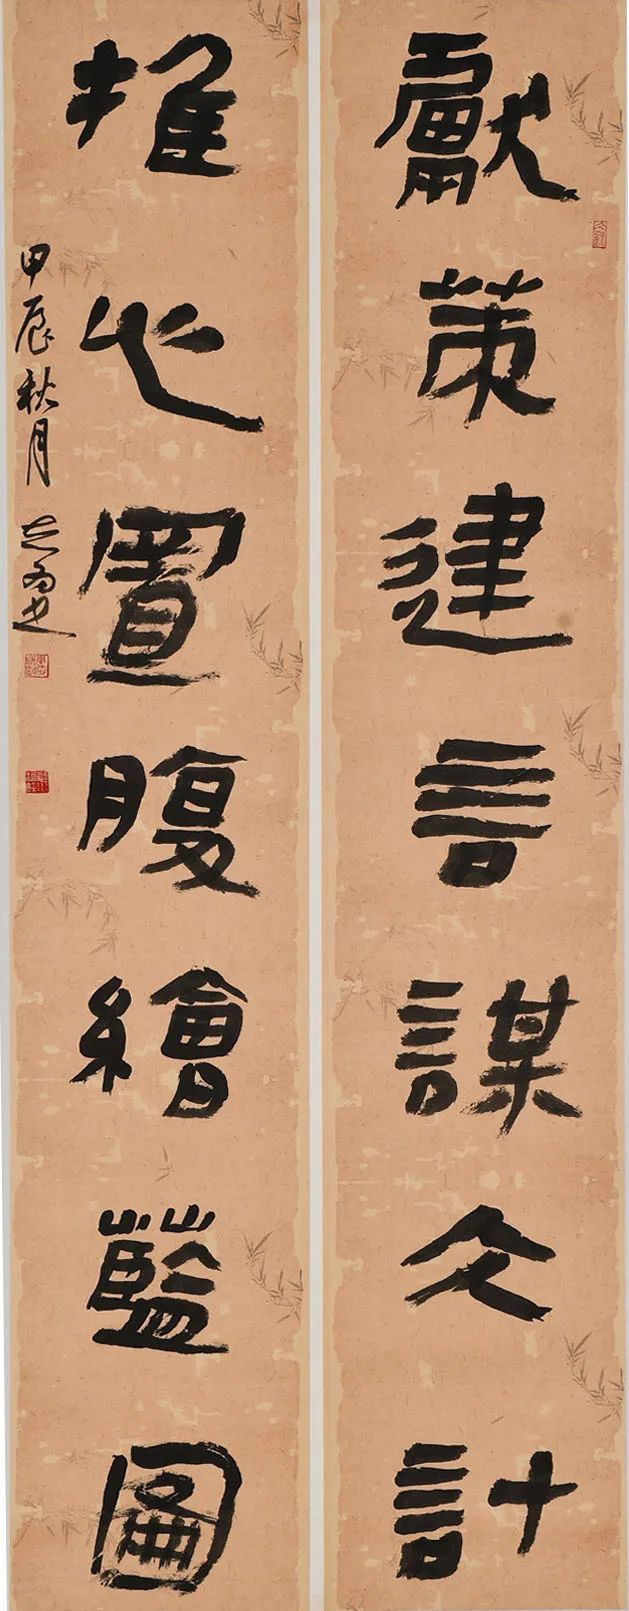 獻策建言謀久計
推心置腹繪藍圖
甲辰秋月